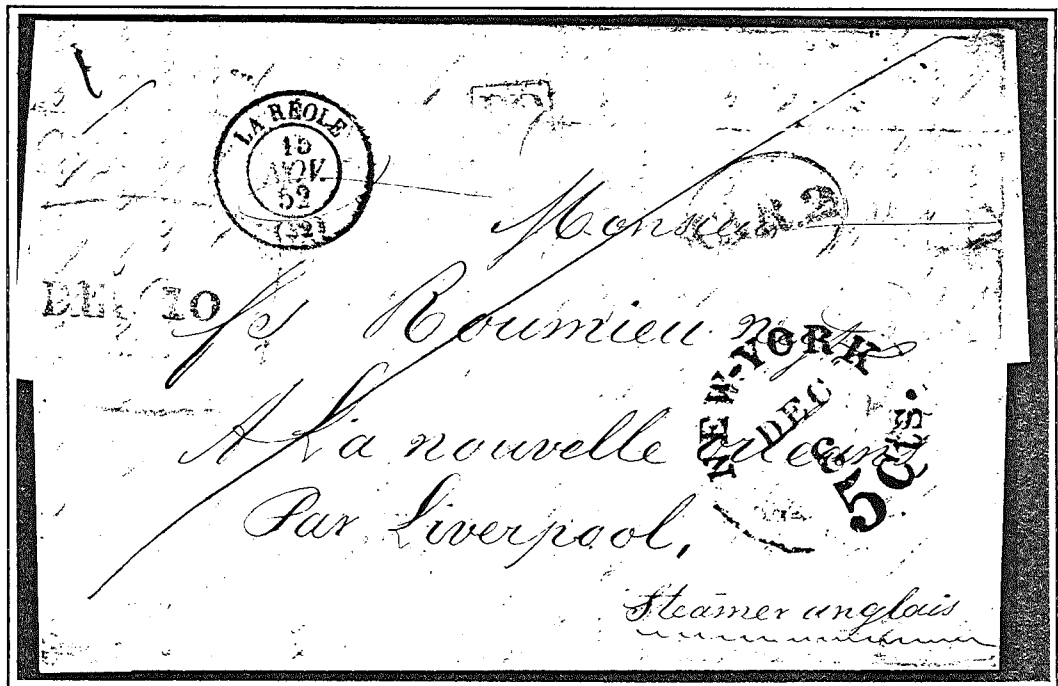 LA RÉOLE
15
NOV.
52
(32)
Monsieur
Roumieu
DEC 10
A La nouvelle orleans
Par Liverpool,
Steamer anglais
NEW-YORK
DEC
5 cts.